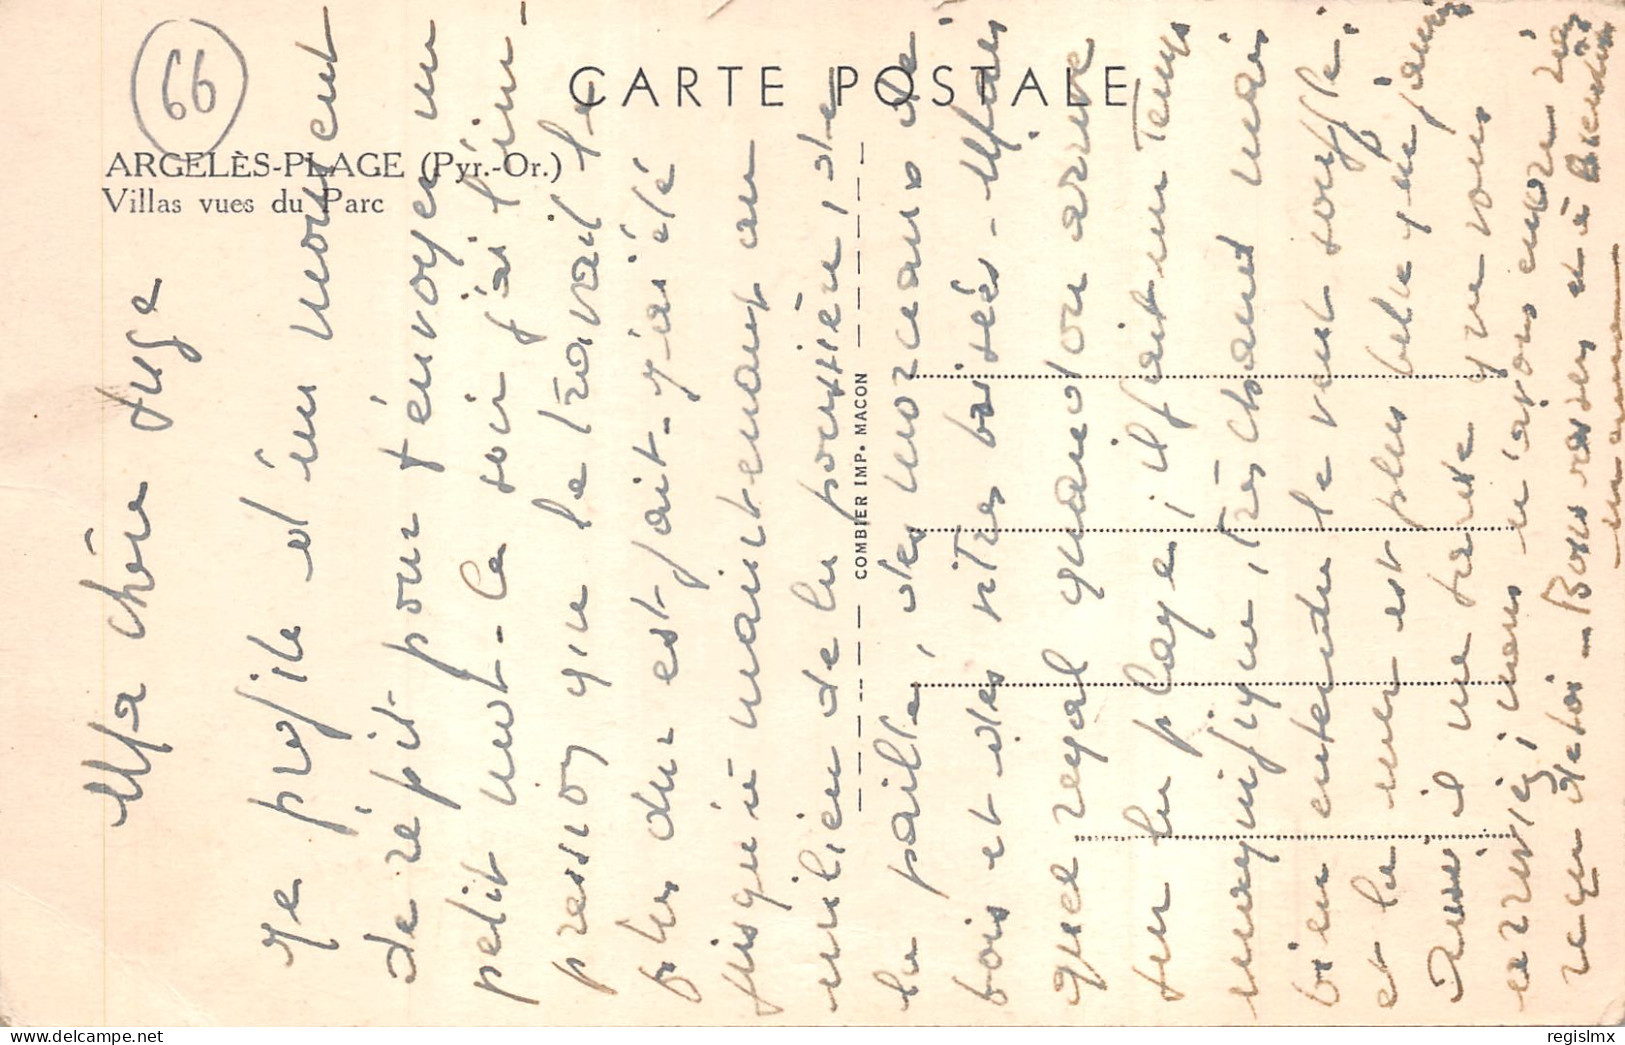 66
CARTE POSTALE
ARGELÈS-PLAGE (Pyr.-Or.)
Villas vues du Parc
COMBIER IMP. MACON
Ma chère Suze
Je profite d'un moment
de répit pour t'envoyer un
petit mot - ce soir j'ai l'im-
pression que le travail le
plus dur est fait - j'ai été
jusqu'à maintenant au
milieu de la poussière, de
la paille, des morceaux de
bois et des vitres brisées -
quel régal quand on arrive
sur la plage, il fait un temps
magnifique, très chaud mais
bien entendu le vent souffle.
et la mer est plus belle que jamais
aussi il me tarde que vous
arriviez, nous n'avons encore rien
reçu de toi - Bons baisers et à bientôt
regislmx